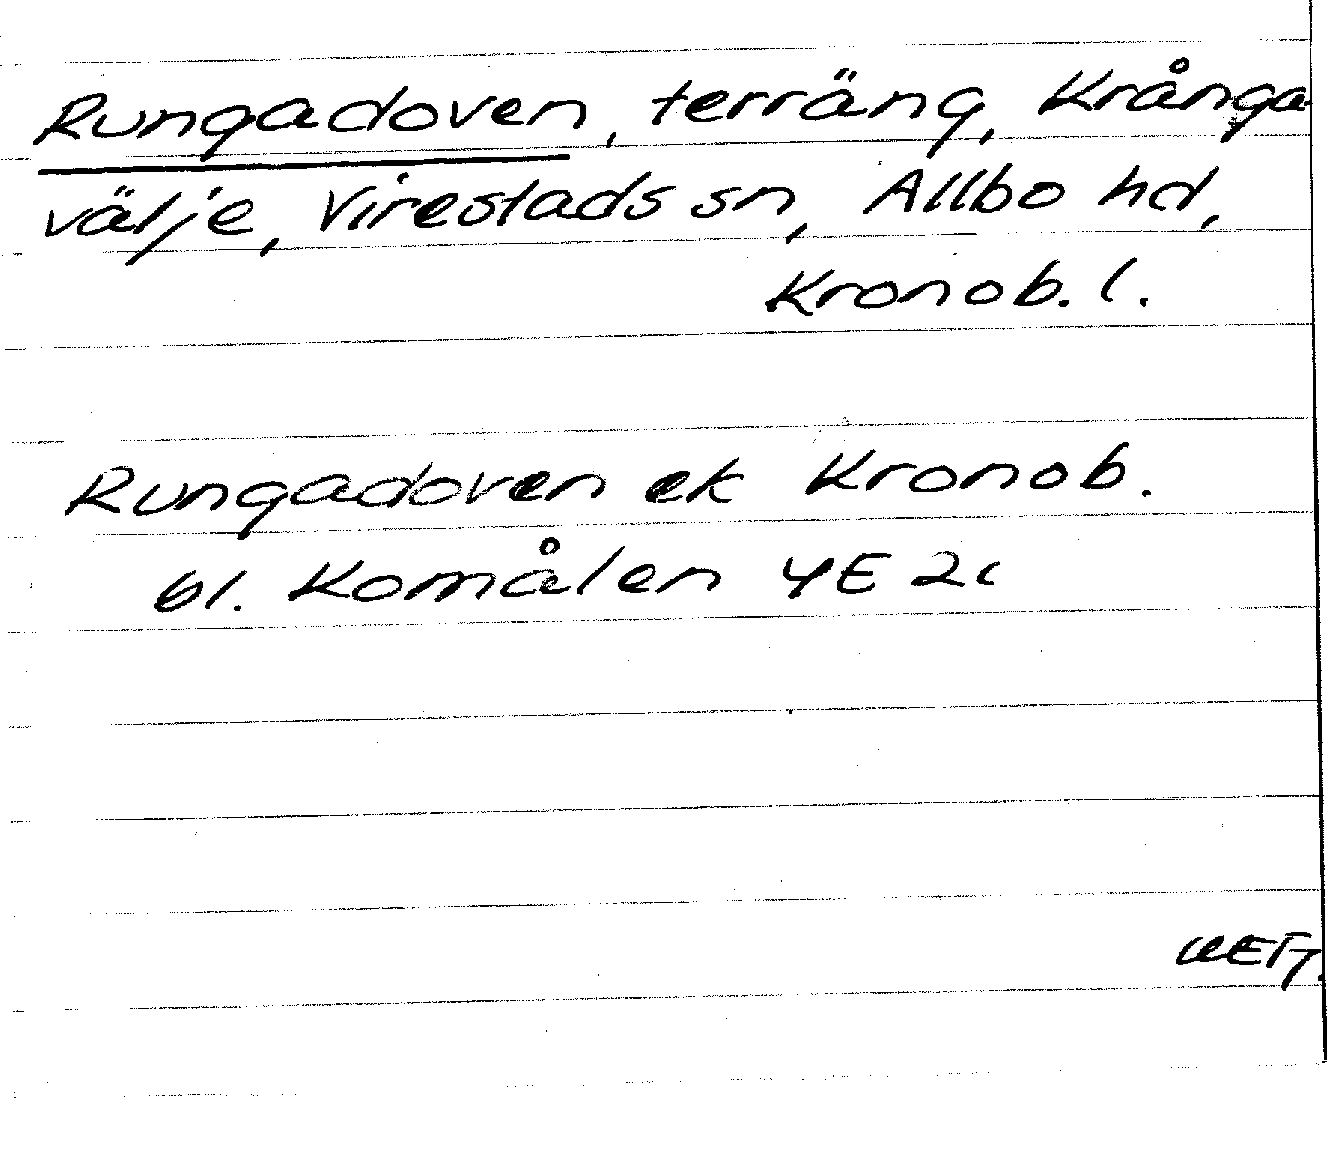 Rungadoven, terräng, Krånga
välje, Virestads sn, Allbo hd,
Kronob. l.
Rungadoven ek Kronob.
bl. Komålen 4E 2c